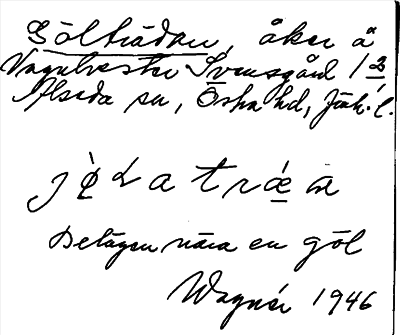 Gölträdan, åker å
Vagnhester Svensgård 1/2
Alseda sn, Östra hd, Jönk. l.
jø̀Latræ̀n
Belägen nära en göl
Wagnér 1946